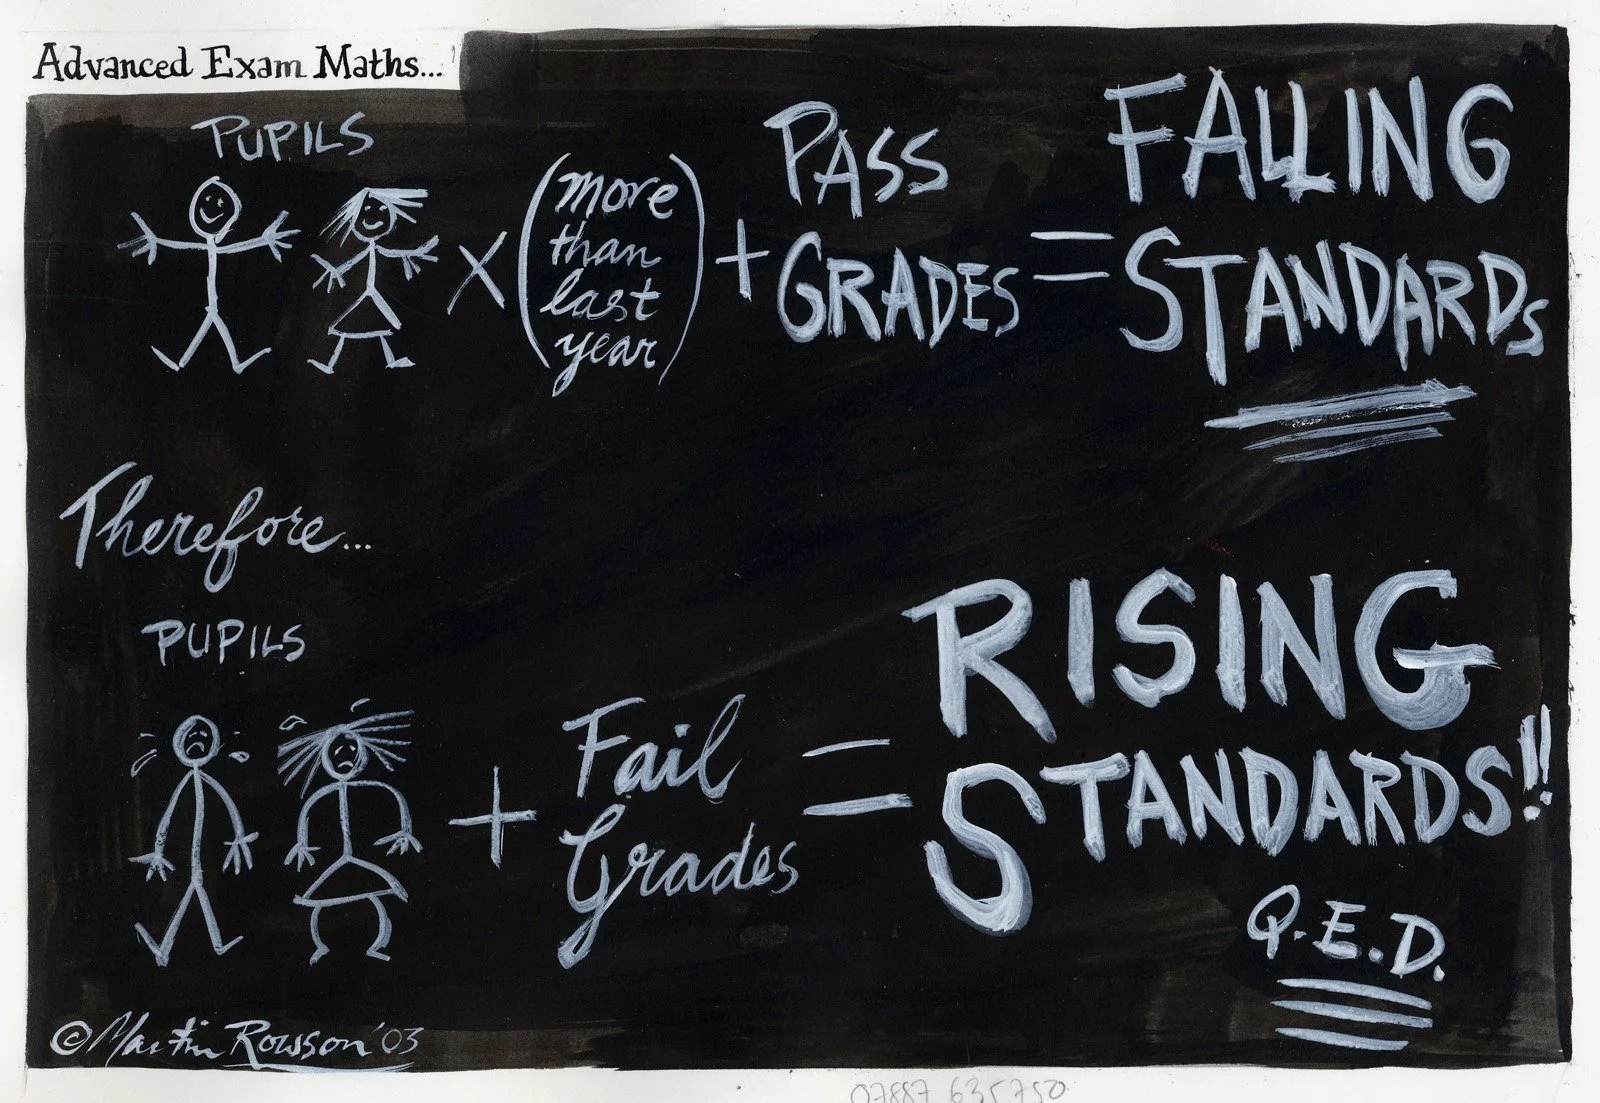 Advanced Exam Maths...
PUPILS
× (more than last year) + PASS GRADES = FALLING STANDARDS
Therefore...
PUPILS
+ Fail Grades = RISING STANDARDS!!
Q.E.D.
© Martin Rowson '03
07887 635750